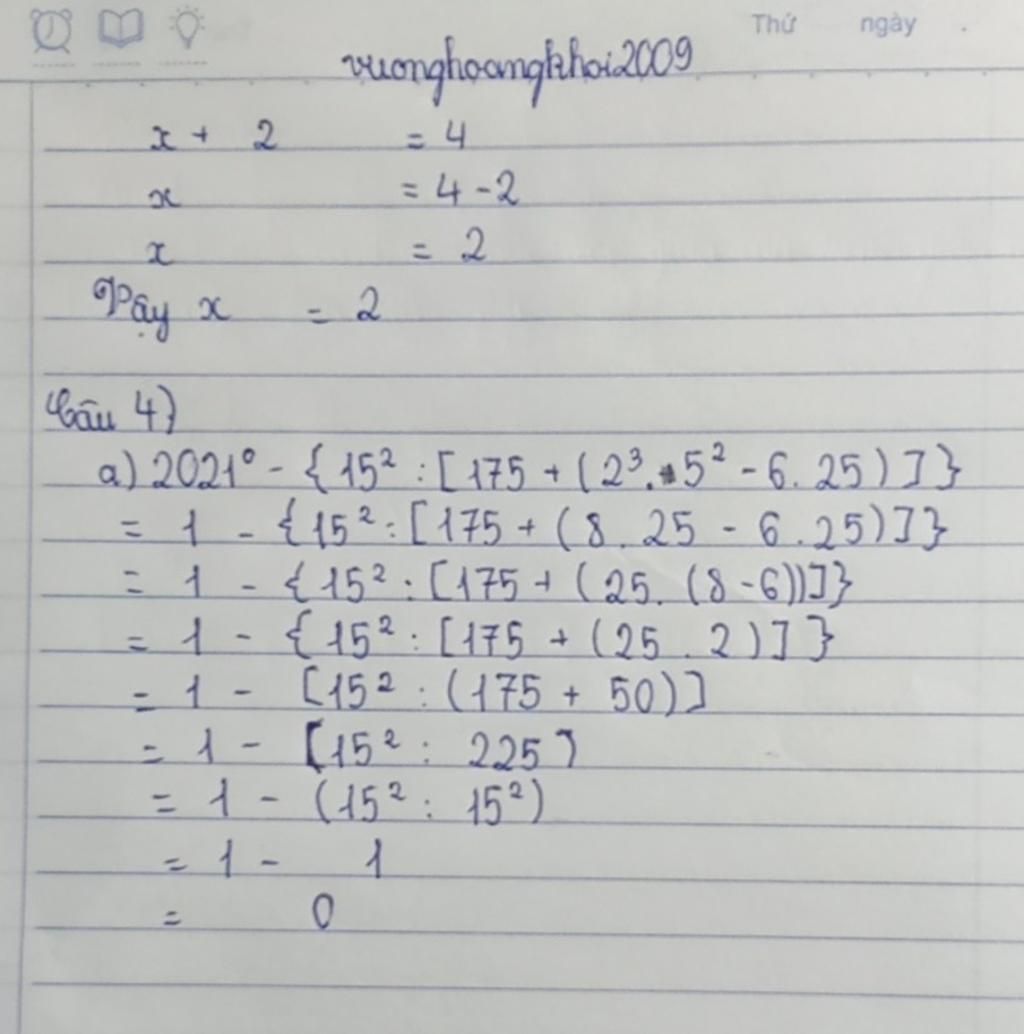 Thứ ngày .
vuonghoangkhoi2009
x + 2 = 4
x = 4 - 2
x = 2
Vậy x = 2
Câu 4)
a) 2021⁰ - { 15² : [ 175 + ( 2³ . 5² - 6 . 25 ) ] }
= 1 - { 15² : [ 175 + ( 8 . 25 - 6 . 25 ) ] }
= 1 - { 15² : [ 175 + ( 25 . ( 8 - 6 ) ) ] }
= 1 - { 15² : [ 175 + ( 25 . 2 ) ] }
= 1 - [ 15² : ( 175 + 50 ) ]
= 1 - [ 15² : 225 ]
= 1 - ( 15² : 15² )
= 1 - 1
= 0